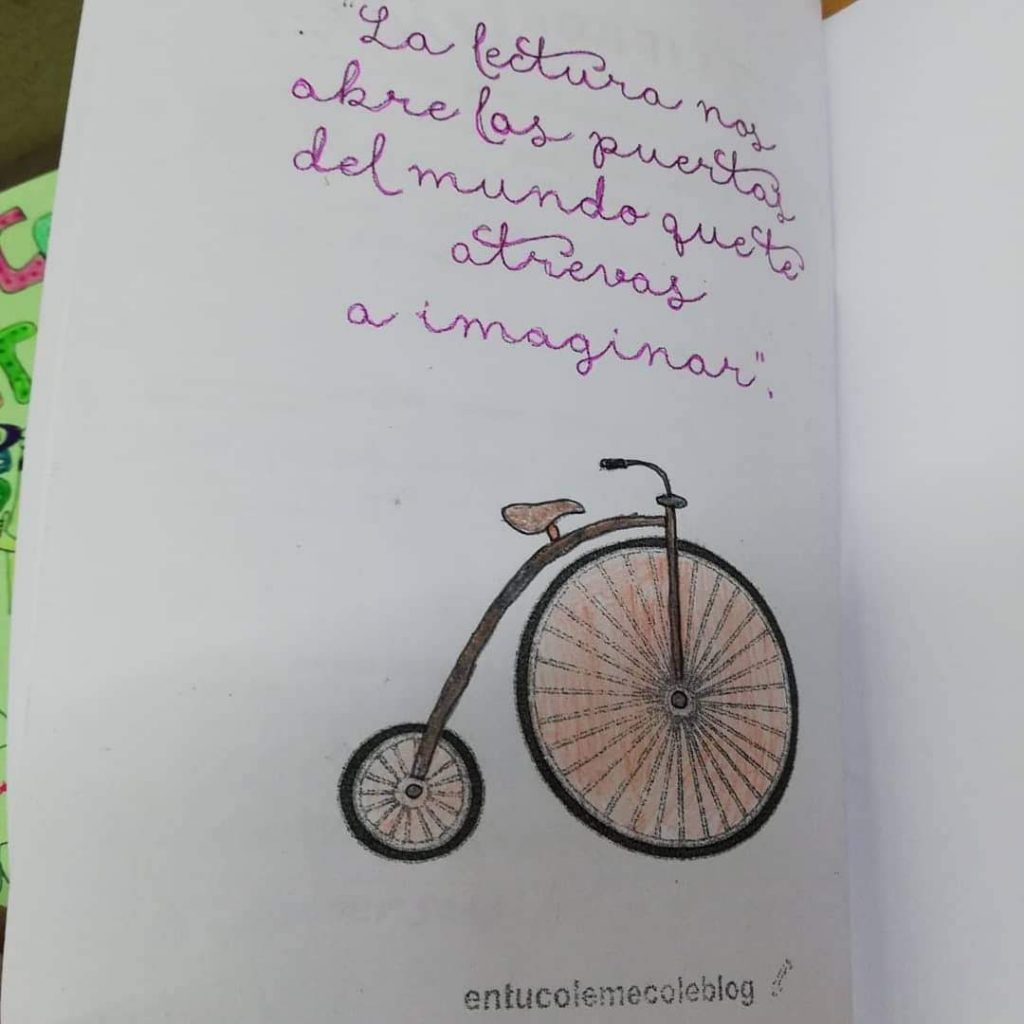 "La lectura nos
abre las puertas
del mundo que te
atrevas
a imaginar".
entucolemecoleblog